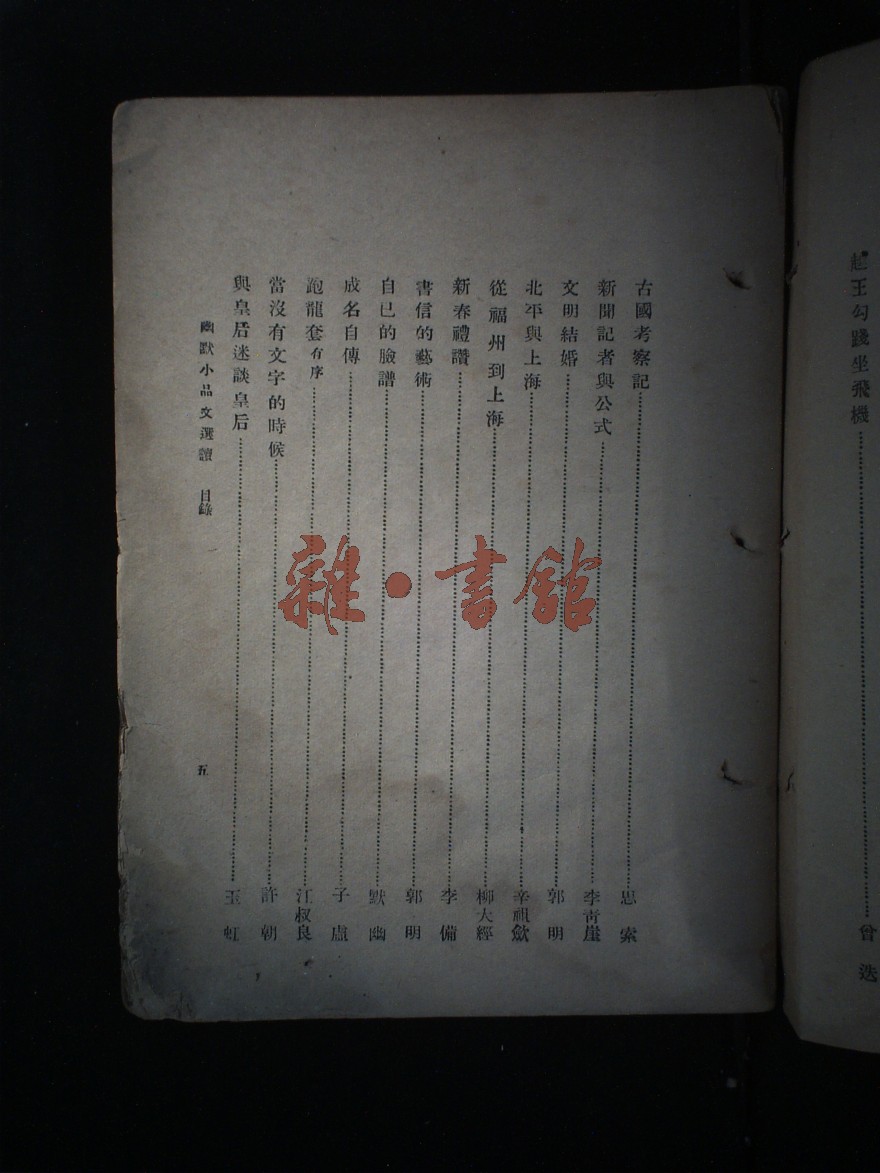 越王勾踐坐飛機…………曾迭
古國考察記…………思索
新聞記者與公式…………李靑崖
文明結婚…………郭明
北平與上海…………辛祖歛
從福州到上海…………柳大經
新春禮讚…………李備
書信的藝術…………郭明
自已的臉譜…………默幽
成名自傳…………子盧
跑龍套有序…………江叔良
當沒有文字的時候…………許朝
與皇后迷談皇后…………玉虹
幽默小品文選讀 目錄
五
雜·書館